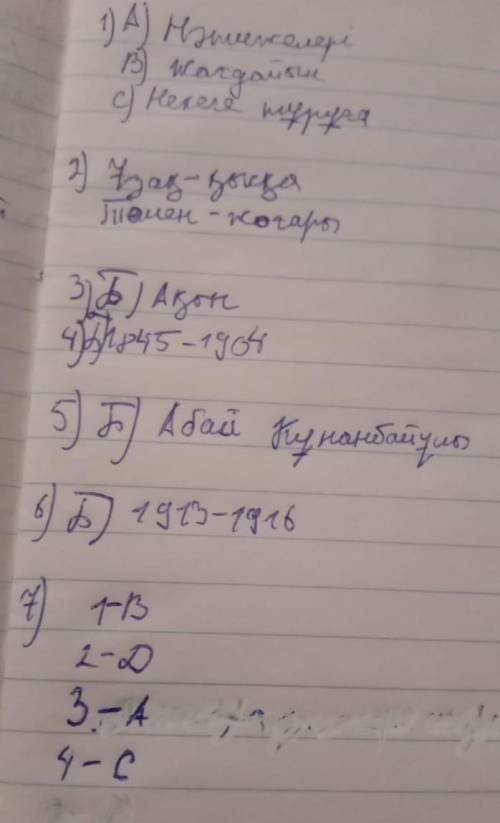 1) А) Нәтижелері
В) Жағдайын
С) Некеге тұруға
2) Ұзақ-қысқа
Төмен-жоғары
3) Б) Ақын
4) 1845-1904
5) Б) Абай Құнанбайұлы
6) Б) 1913-1916
7) 1-В
2-D
3-А
4-С